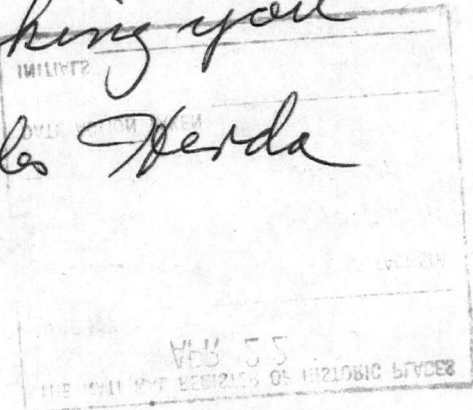 king you
INITIALS
DATE ACTION TAKEN
les Herda
APR 22
THE NATIONAL REGISTER OF HISTORIC PLACES